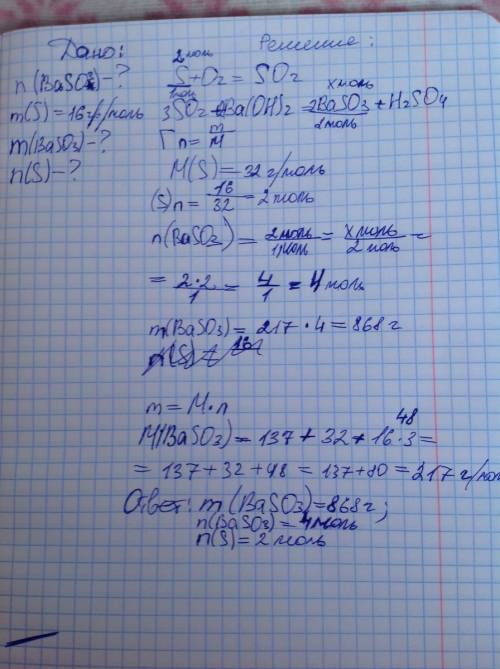 Дано:
Решение:
n(BaSO3)-?
2 моль
S+O2 = SO2
1моль
m(S)=16 г/моль
x моль
3SO2 + Ba(OH)2 = 2BaSO3 + H2SO4
2 моль
m(BaSO3)-?
Г n= m/M
n(S)-?
M(S)=32 г/моль
(S)n= 16/32 =2 моль
n(BaSO3)= 2 моль/1 моль = x моль/2 моль =
= 2·2/1 = 4/1 = 4 моль
m(BaSO3)=217·4=868 г
m=M·n
48
M(BaSO3)=137+32+16·3=
=137+32+48=137+80=217 г/моль
Ответ: m(BaSO3)=868г;
n(BaSO3)=4моль
n(S)=2 моль